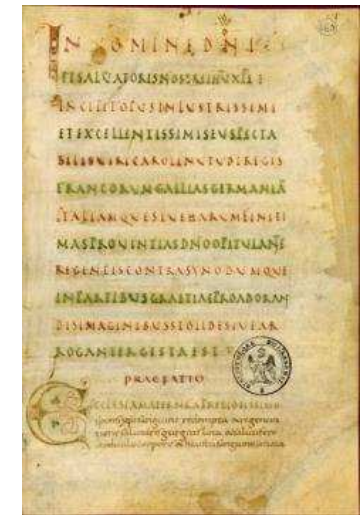 IN NOMINE DNI
ET SALVATORIS NOSTRI IHU XPI I
INCIPIT OPUS INLUSTRISSIMI
ET EXCELLENTISSIMI SEU SPECTA
BILIS VIRI CAROLI NUTU DI REGIS
FRANCORUM GALLIAS GERMANIĀ
ITALIAMQUE SIVE HARUM FINITI
MAS PROVINTIAS DNO OPITULANTE
REGENTIS CONTRA SYNODUM QUE
IN PARTIBUS GRAETIAE PRO ADORAN
DIS IMAGINIBUS STOLIDE SIVE AR
ROGANTER GESTA EST
PRAEFATIO
ECCLESIA MATER NRA PRETIOSISSIMO
sponsi sui sanguine redempta